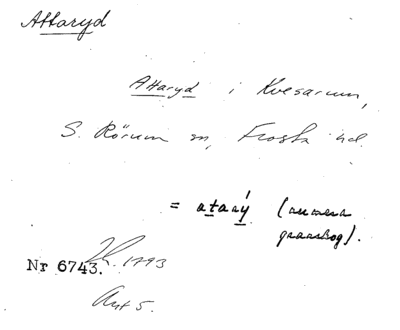 Attaryd
Attaryd i Kvesarum,
S. Rörum sn, Frosta hd.
= atarý (numera
gaardbog).
Nr 6743. 1793
Akt 5.